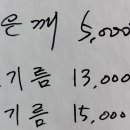 은깨 5,000
기름 13,000
기름 15,000